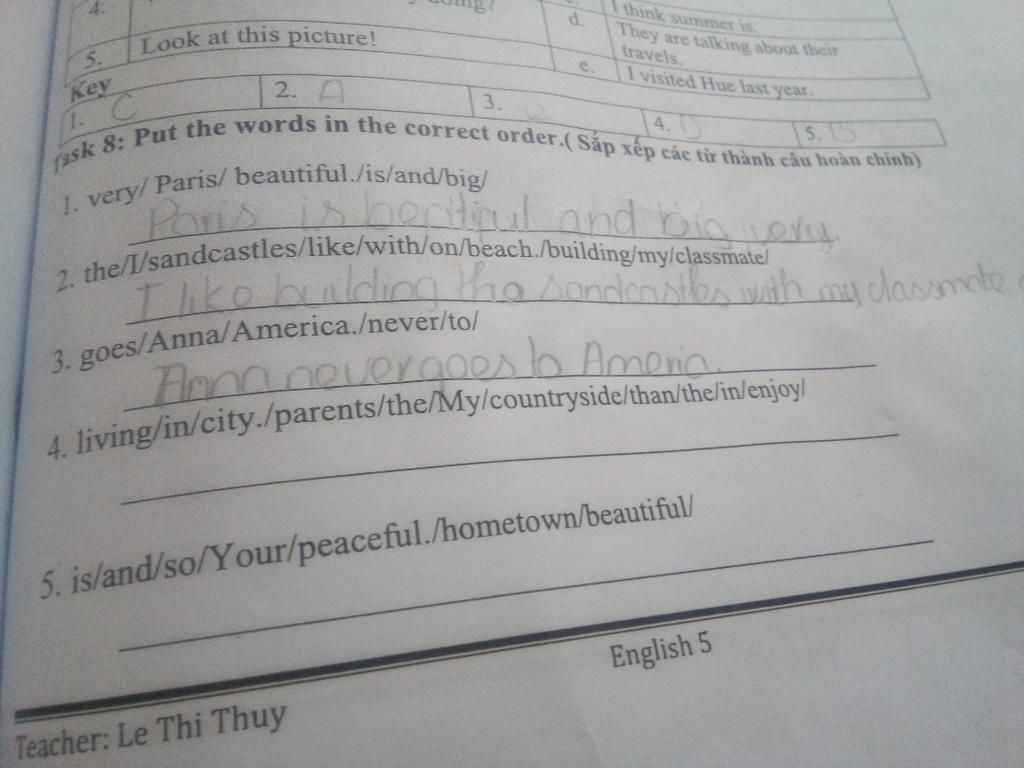 4. doing?
d. I think summer is.
They are talking about their
travels.
5. Look at this picture! e. I visited Hue last year.
Key
1. C 2. A 3. 4. D 5. B
Task 8: Put the words in the correct order.( Sắp xếp các từ thành câu hoàn chỉnh)
1. very/ Paris/ beautiful./is/and/big/
Paris is and big very.
2. the/I/sandcastles/like/with/on/beach./building/my/classmate/
I like building the sandcastles with my classmate
3. goes/Anna/America./never/to/
Anna never goes to Ameria.
4. living/in/city./parents/the/My/countryside/than/the/in/enjoy/
5. is/and/so/Your/peaceful./hometown/beautiful/
English 5
Teacher: Le Thi Thuy